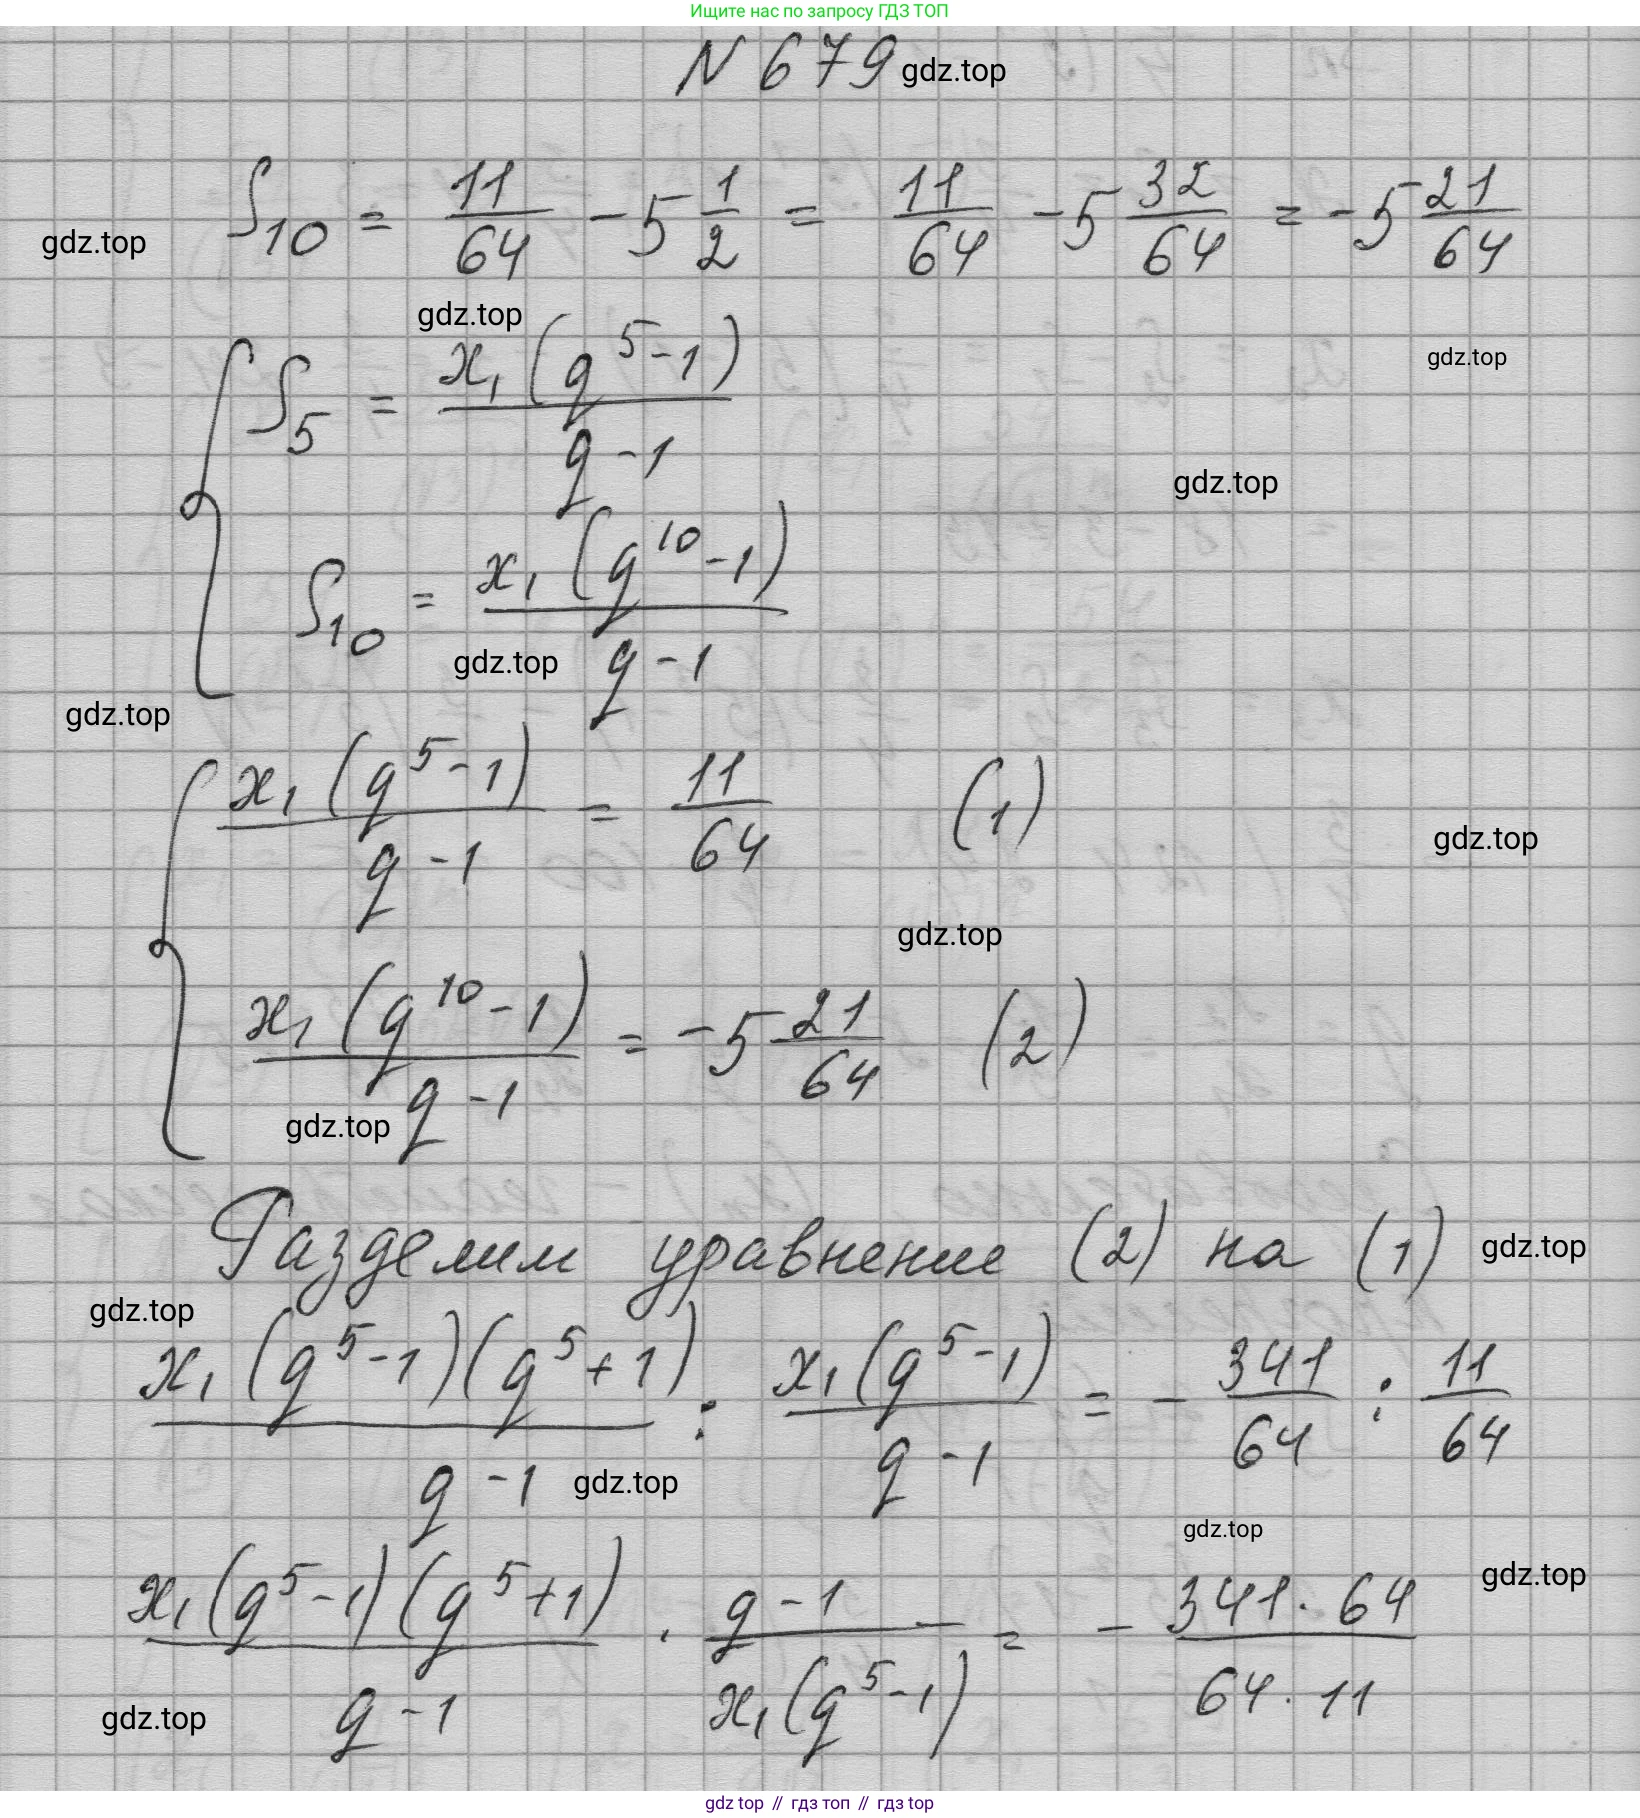 Ищите нас по запросу ГДЗ ТОП
N 679 gdz.top
S₁₀ = 11/64 - 5 1/2 = 11/64 - 5 32/64 = -5 21/64
gdz.top
gdz.top
S₅ = x₁(q⁵-1)/(q-1)
gdz.top
gdz.top
S₁₀ = x₁(q¹⁰-1)/(q-1)
gdz.top
gdz.top
x₁(q⁵-1)/(q-1) = 11/64 (1)
gdz.top
gdz.top
x₁(q¹⁰-1)/(q-1) = -5 21/64 (2)
gdz.top
Разделим уравнение (2) на (1) gdz.top
gdz.top
x₁(q⁵-1)(q⁵+1)/(q-1) : x₁(q⁵-1)/(q-1) = - 341/64 : 11/64
gdz.top
gdz.top
gdz.top
x₁(q⁵-1)(q⁵+1)/(q-1) · (q-1)/(x₁(q⁵-1)) = - 341·64/(64·11)
gdz.top
gdz top // гдз топ // гдз top